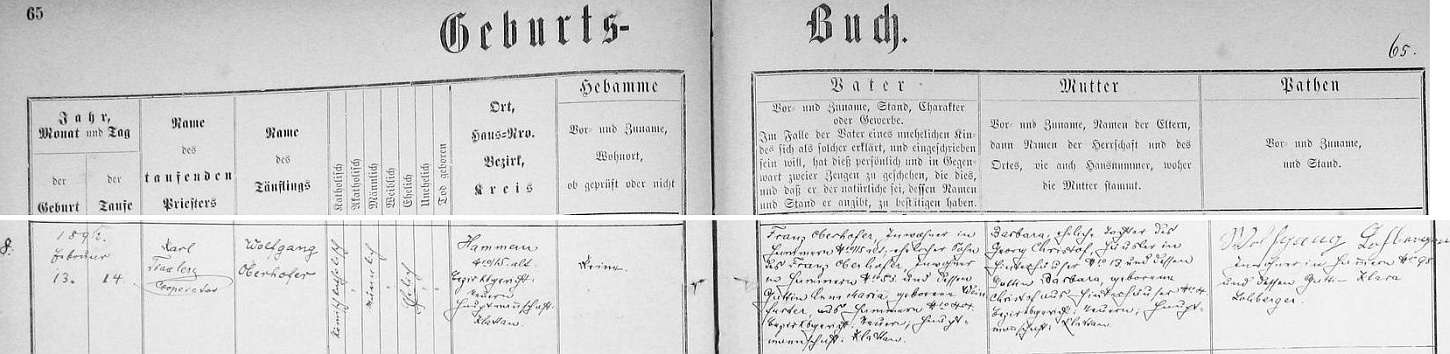 65
Geburts-
Buch.
65.
Jahr,
Monat und Tag
der
Geburt
der
Taufe
Name
des
taufenden
Priesters
Name
des
Täuflings
Katholisch
Akatholisch
Männlich
Weiblich
Ehelich
Unehelich
Tod geboren
Ort,
Haus-Nro.
Bezirk,
Kreis
Hebamme
Vor- und Zuname,
Wohnort,
ob geprüft oder nicht
Vater
Vor- und Zuname, Stand, Charakter
oder Gewerbe.
Im Falle der Vater eines unehelichen Kin-
des sich als solcher erklärt, und eingeschrieben
sein will, hat dieß persönlich und in Gegen-
wart zweier Zeugen zu geschehen, die dies,
und daß er der natürliche sei, dessen Namen
und Stand er angibt, zu bestätigen haben.
Mutter
Vor- und Zuname, Namen der Eltern,
dann Namen der Herrschaft und des
Ortes, wie auch Hausnummer, woher
die Mutter stammt.
Pathen
Vor- und Zuname,
und Stand.
Februar
13.
14
Karl
Cooperator
Wolfgang
Oberhofer
männlich
Ehelich
Hammern
alt
Bezirksgericht
Neuern,
Hauptmannschaft
Klattau
Franz Oberhofer, Inwohner in
Hammern ehelicher Sohn
des Franz Oberhofer, Inwohner
in Hammern und dessen
Gattin Anna Maria geborene
aus Hammern
Bezirksgericht Neuern, Haupt-
mannschaft Klattau.
Barbara, eheliche Tochter des
Georg Häusler in
Hinterhäuser N 13 und dessen
Gattin Barbara, geborenen
Hinterhäuser
Bezirksgericht Neuern, Haupt-
mannschaft Klattau.
Wolfgang
Inwohner in Hammern
und dessen Gattin Klara